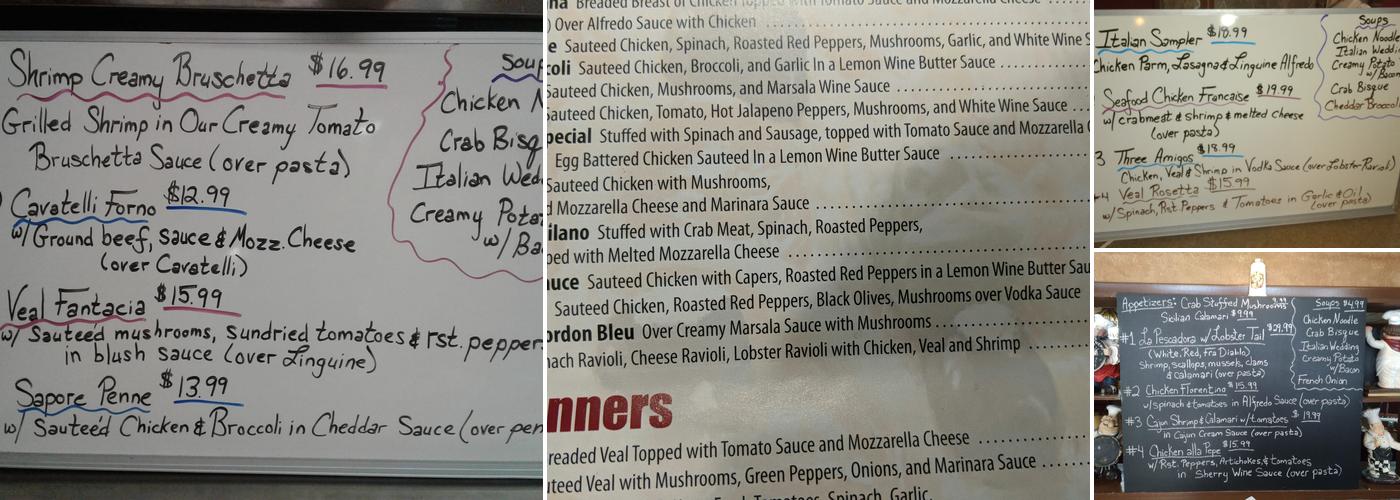 Shrimp Creamy Bruschetta $16.99
Grilled Shrimp in Our Creamy Tomato
Bruschetta Sauce (over pasta)
Cavatelli Forno $12.99
w/ Ground beef, sauce & Mozz. Cheese
(over Cavatelli)
Veal Fantacia $15.99
w/ Sauteed mushrooms, sundried tomatoes & rst. pepper
in blush sauce (over Linguine)
Sapore Penne $13.99
w/ Sauteed Chicken & Broccoli in Cheddar Sauce (over pen
Soup
Chicken N
Crab Bisq
Italian Wed
Creamy Pota
w/ Ba
na Breaded Breast of Chicken Topped with Tomato Sauce and Mozzarella Cheese
) Over Alfredo Sauce with Chicken
e Sauteed Chicken, Spinach, Roasted Red Peppers, Mushrooms, Garlic, and White Wine S
coli Sauteed Chicken, Broccoli, and Garlic In a Lemon Wine Butter Sauce
Sauteed Chicken, Mushrooms, and Marsala Wine Sauce
Sauteed Chicken, Tomato, Hot Jalapeno Peppers, Mushrooms, and White Wine Sauce
pecial Stuffed with Spinach and Sausage, topped with Tomato Sauce and Mozzarella C
Egg Battered Chicken Sauteed In a Lemon Wine Butter Sauce
Sauteed Chicken with Mushrooms,
d Mozzarella Cheese and Marinara Sauce
ilano Stuffed with Crab Meat, Spinach, Roasted Peppers,
ped with Melted Mozzarella Cheese
uce Sauteed Chicken with Capers, Roasted Red Peppers in a Lemon Wine Butter Sau
Sauteed Chicken, Roasted Red Peppers, Black Olives, Mushrooms over Vodka Sauce
ordon Bleu Over Creamy Marsala Sauce with Mushrooms
nach Ravioli, Cheese Ravioli, Lobster Ravioli with Chicken, Veal and Shrimp
nners
readed Veal Topped with Tomato Sauce and Mozzarella Cheese
uteed Veal with Mushrooms, Green Peppers, Onions, and Marinara Sauce
Spinach, Garlic,
Italian Sampler $18.99
Chicken Parm, Lasagna & Linguine Alfredo
Seafood Chicken Francaise $19.99
w/ crabmeat & shrimp & melted cheese
(over pasta)
3 Three Amigos $18.99
Chicken, Veal & Shrimp in Vodka Sauce (over Lobster Ravioli)
4 Veal Rosetta $15.99
w/ Spinach, Rst. Peppers & Tomatoes in Garlic & Oil
(over pasta)
Soups
Chicken Noodle
Italian Weddi
Creamy Potato
w/ Bacon
Crab Bisque
Cheddar Broccoli
Appetizers: Crab Stuffed Mushrooms 9.99
Sicilian Calamari $9.99
#1 La Pescadora w/ Lobster Tail $29.99
(White, Red, Fra Diablo)
Shrimp, scallops, mussels, clams
& calamari (over pasta)
#2 Chicken Florentino $15.99
w/ spinach & tomatoes in Alfredo Sauce (over pasta)
#3 Cajun Shrimp & Calamari w/ tomatoes $19.99
in Cajun Cream Sauce (over pasta)
#4 Chicken alla Pepe $15.99
w/ Rst. Peppers, Artichokes, & tomatoes
in Sherry Wine Sauce (over pasta)
Soups $4.99
Chicken Noodle
Crab Bisque
Italian Wedding
Creamy Potato
w/ Bacon
French Onion